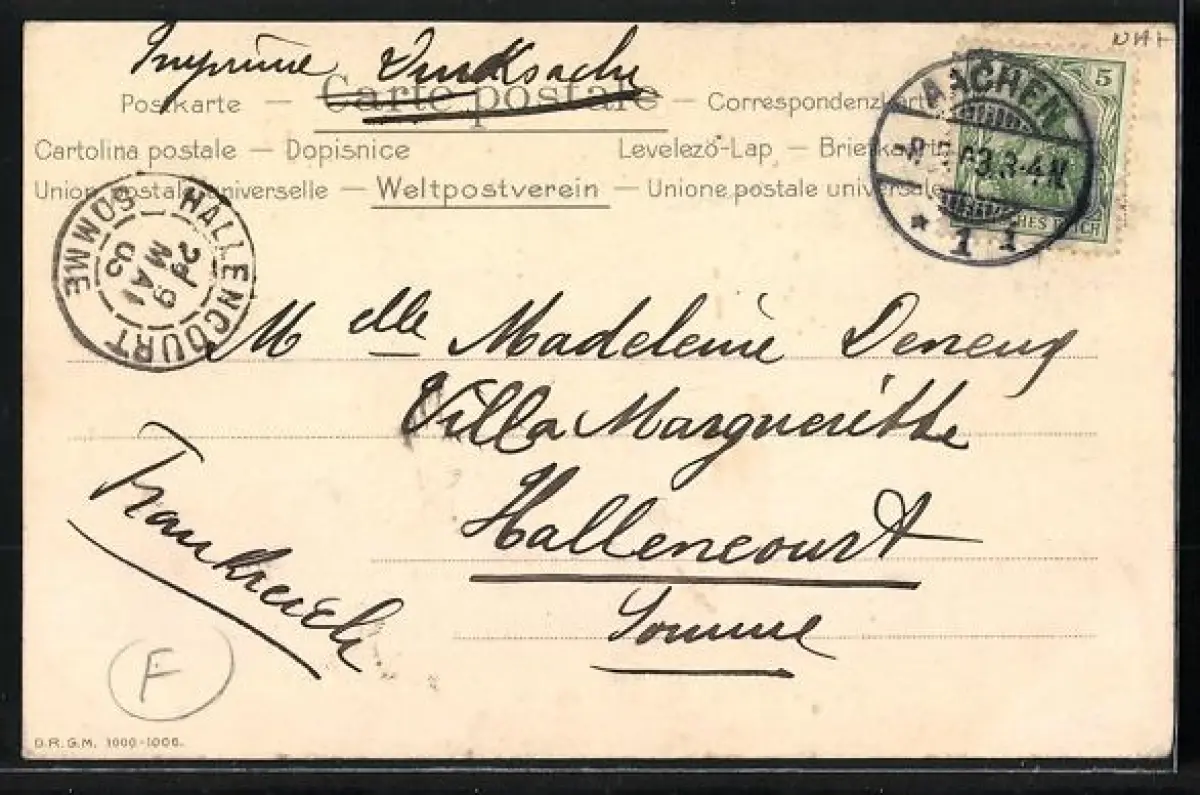 Imprimé Drucksache
Postkarte — Carte postale — Correspondenzkarte
Cartolina postale — Dopisnice Levelező-Lap — Briefkaart
Union postale universelle — Weltpostverein — Unione postale universale
AACHEN
03.3-4N
* 1 i
5
HES REICH
HALLENCOURT
SOMME
9
MAI
03
Mdlle Madeleine
Villa Marguerithe
Hallencourt
Somme
Frankreich
F
D.R.G.M. 1000-1006.